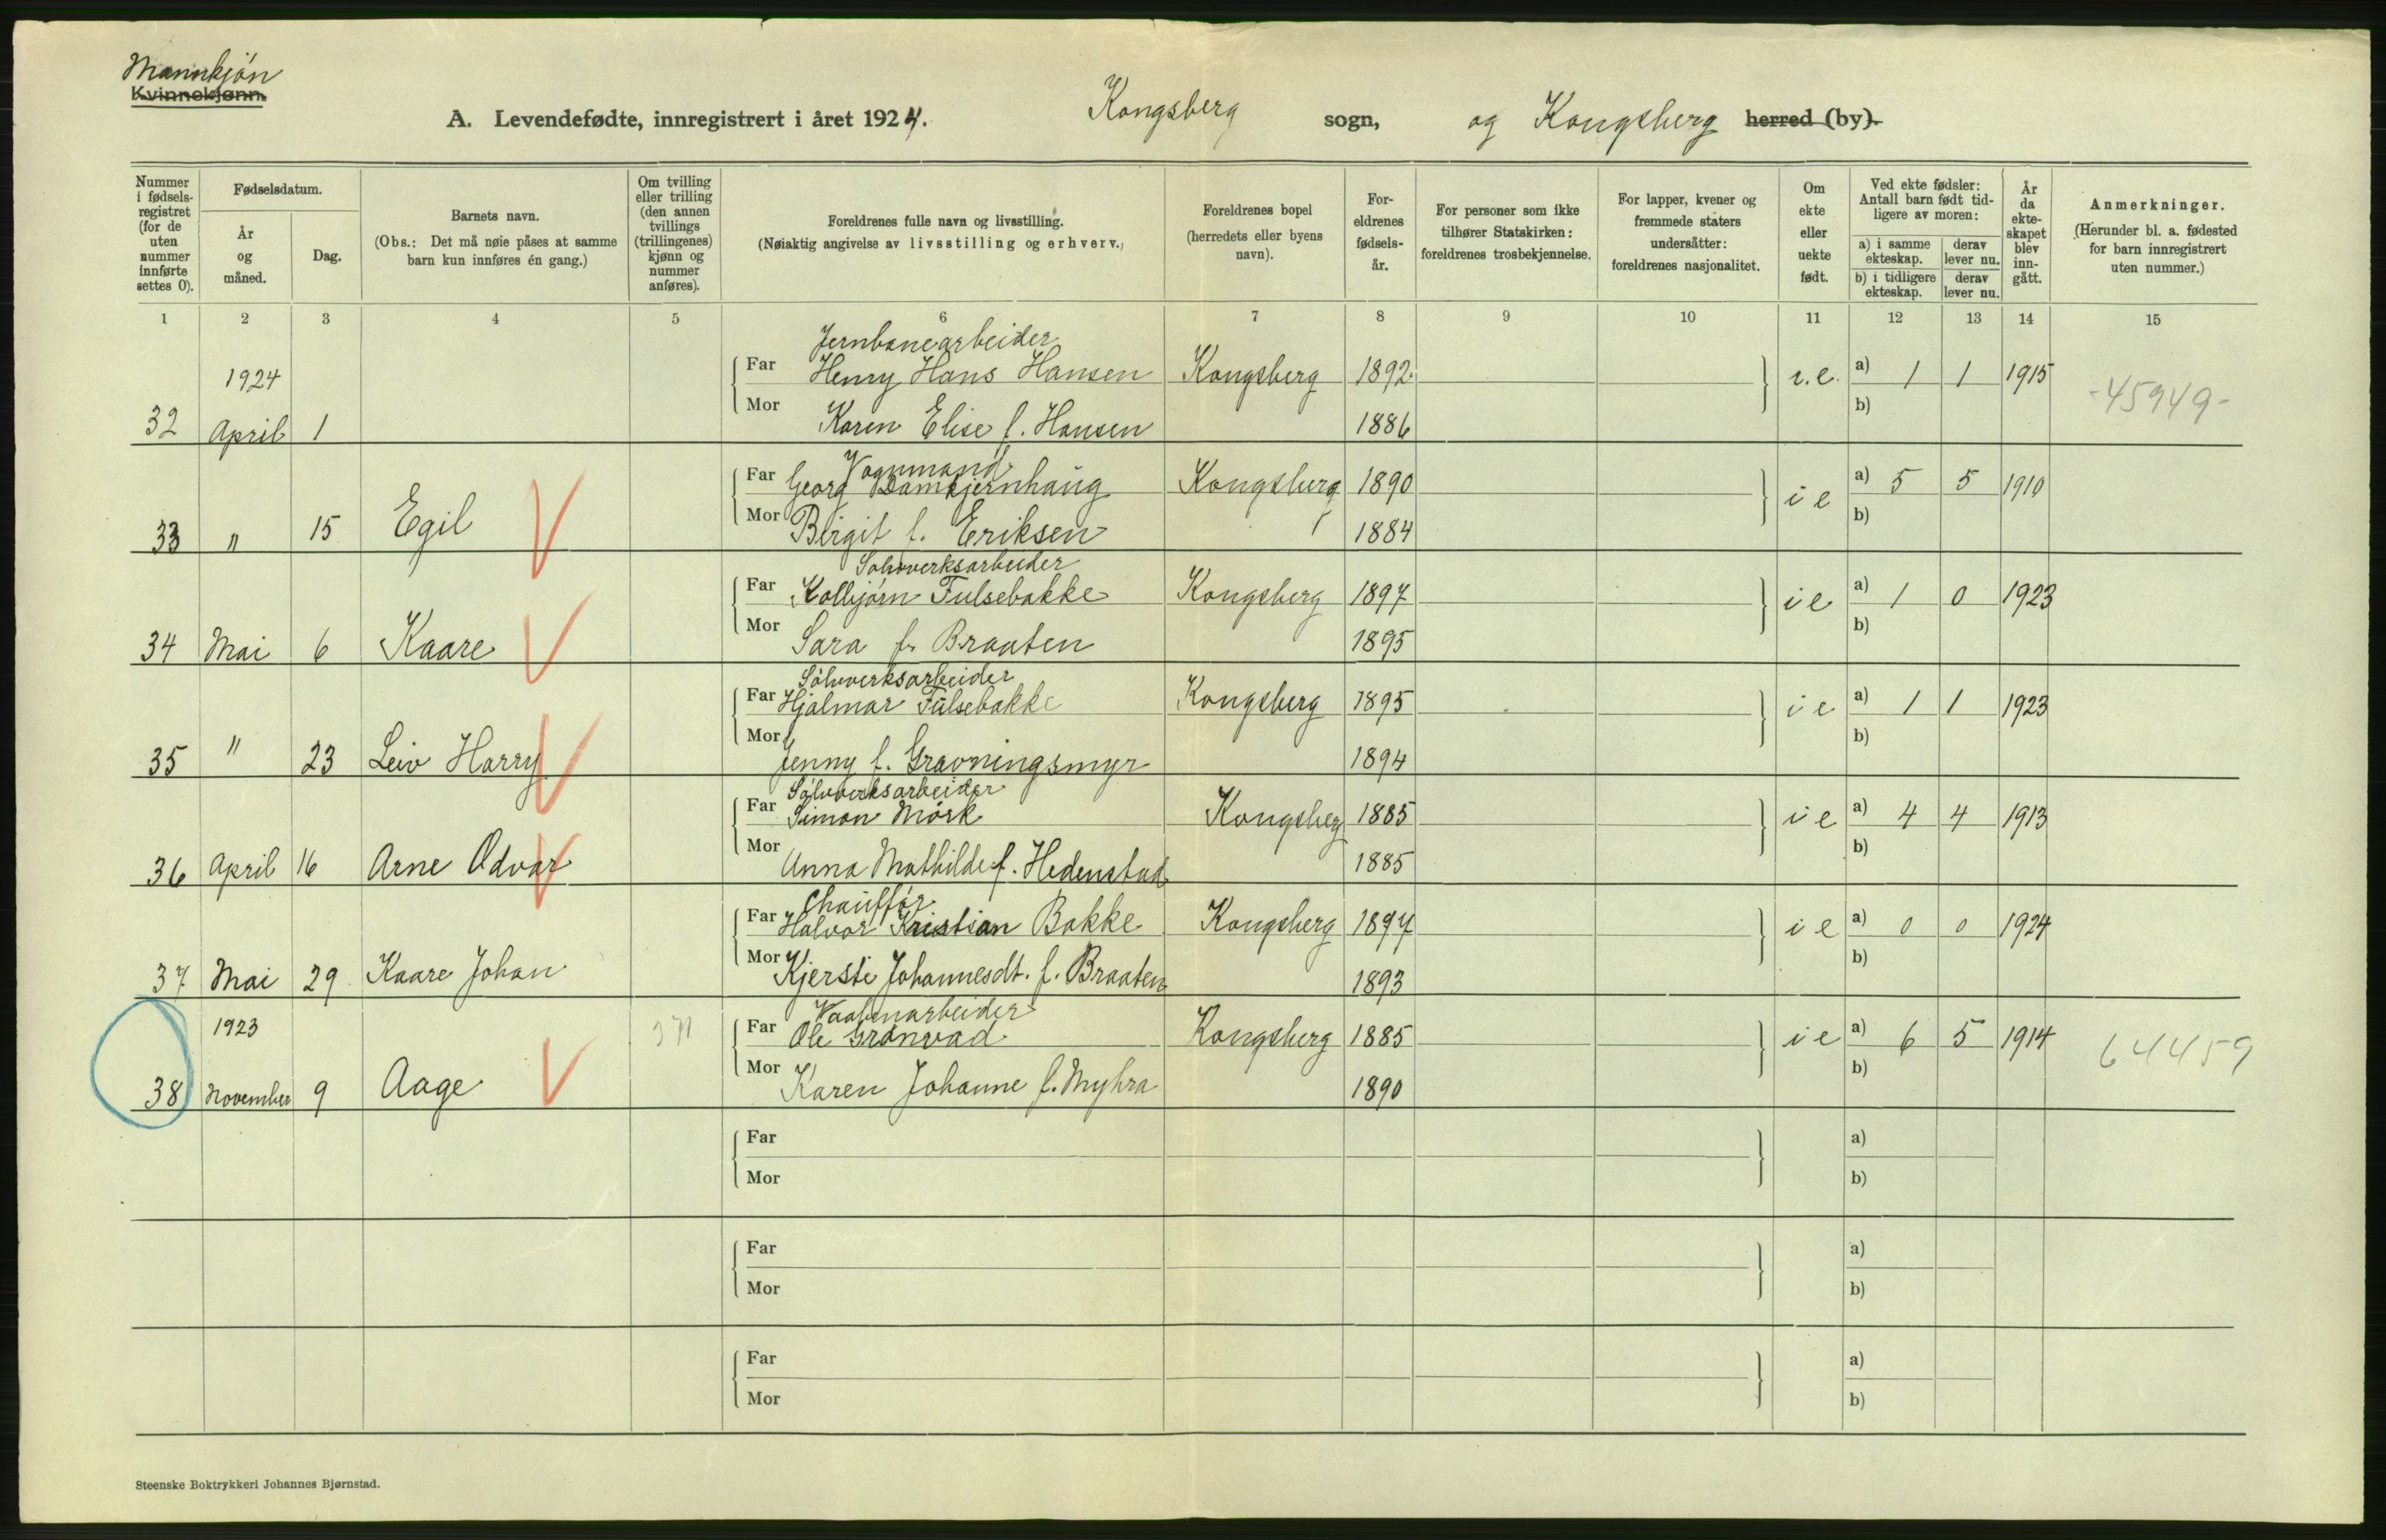 Mannkjön
Kvinnekjønn.
A. Levendefødte, innregistrert i året 1924. Kongsberg sogn, og Kongsberg herred (by).
Nummer i fødselsregistret (for de uten nummer innførte settes 0).
Fødselsdatum.
År og måned.
Dag.
Barnets navn.
(Obs.: Det må nøie påses at samme barn kun innføres én gang.)
Om tvilling eller trilling (den annen tvillings (trillingenes) kjønn og nummer anføres).
Foreldrenes fulle navn og livsstilling.
(Nøiaktig angivelse av livsstilling og erhverv.)
Foreldrenes bopel (herredets eller byens navn).
Foreldrenes fødselsår.
For personer som ikke tilhører Statskirken: foreldrenes trosbekjennelse.
For lapper, kvener og fremmede staters undersåtter: foreldrenes nasjonalitet.
Om ekte eller uekte født.
Ved ekte fødsler: Antall barn født tidligere av moren:
a) i samme ekteskap. derav lever nu.
b) i tidligere ekteskap. derav lever nu.
År da ekteskapet blev inngått.
Anmerkninger.
(Herunder bl. a. fødested for barn innregistrert uten nummer.)
1 2 3 4 5 6 7 8 9 10 11 12 13 14 15
Jernbanearbeider
1924 Far Henry Hans Hansen Kongsberg 1892 i.e. a) 1 1 1915 -45949-
32 April 1 Mor Karen Elise f. Hansen 1886 b)
Vognmand
Far Georg Damtjernhaug Kongsberg 1890 i e a) 5 5 1910
33 " 15 Egil Mor Birgit f. Eriksen 1884 b)
Sølvverksarbeider
Far Kolbjörn Fulsebakke Kongsberg 1897 i e a) 1 0 1923
34 Mai 6 Kaare Mor Sara f. Braaten 1895 b)
Sölvverksarbeider
Far Hjalmar Fulsebakke Kongsberg 1895 i e a) 1 1 1923
35 " 23 Leiv Harry Mor Jenny f. Gravningsmyr 1894 b)
Sölvverksarbeider
Far Simon Mörk Kongsberg 1885 i e a) 4 4 1913
36 April 16 Arne Odvar Mor Anna Mathilde f. Hedenstad 1885 b)
Chaufför
Far Halvor Kristian Bakke Kongsberg 1897 i e a) 0 0 1924
37 Mai 29 Kaare Johan Mor Kjersti Johannesdt. f. Braaten 1893 b)
Vaabenarbeider
1923 371 Far Ole Grönvad Kongsberg 1885 i e a) 6 5 1914 64459
38 November 9 Aage Mor Karen Johanne f. Myhra 1890 b)
Far a)
Mor b)
Far a)
Mor b)
Far a)
Mor b)
Steenske Boktrykkeri Johannes Bjørnstad.